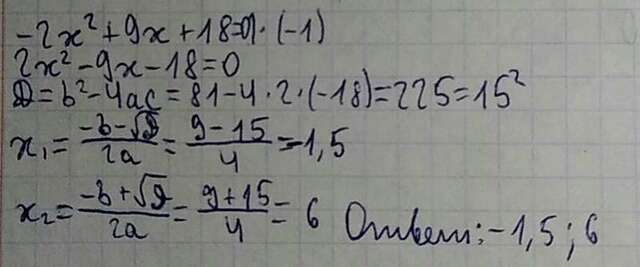 -2x²+9x+18=0|·(-1)
2x²-9x-18=0
D=b²-4ac=81-4·2·(-18)=225=15²
x₁=(-b-√D)/2a=(9-15)/4=-1,5
x₂=(-b+√D)/2a=(9+15)/4=6 Ответ:-1,5;6